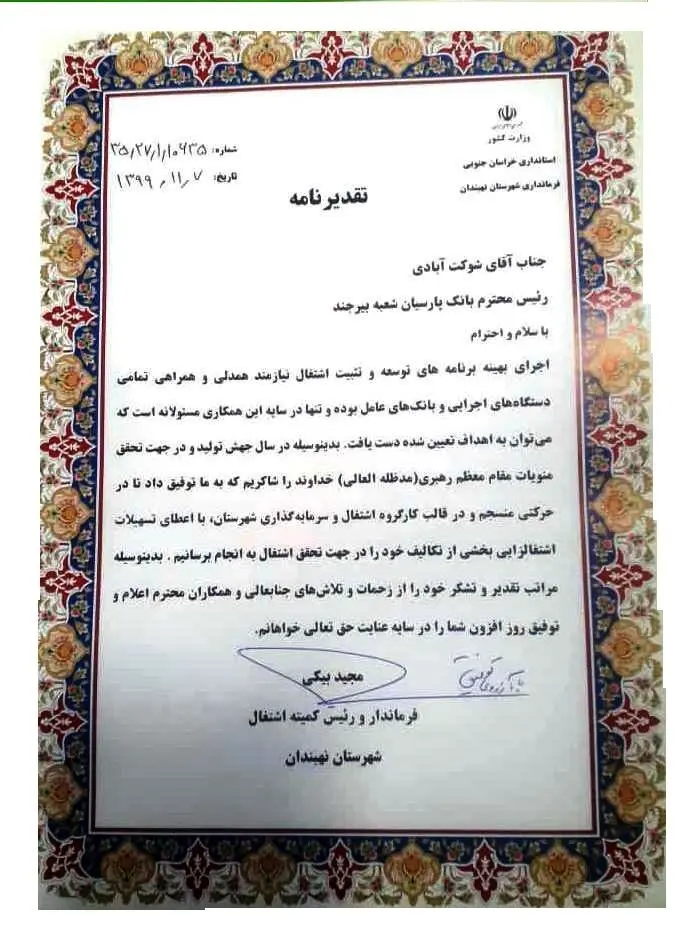 وزارت کشور
استانداری خراسان جنوبی
فرمانداری شهرستان نهبندان
شماره: ۳۵/۲۷/۱/۱۰۶۳۵
تاریخ: ۱۳۹۹/۱۱/۷
تقدیرنامه
جناب آقای شوکت آبادی
رئیس محترم بانک پارسیان شعبه بیرجند
با سلام و احترام
اجرای بهینه برنامه های توسعه و تثبیت اشتغال نیازمند همدلی و همراهی تمامی
دستگاه‌های اجرایی و بانک‌های عامل بوده و تنها در سایه این همکاری مسئولانه است که
می‌توان به اهداف تعیین شده دست یافت. بدینوسیله در سال جهش تولید و در جهت تحقق
منویات مقام معظم رهبری(مدظله العالی) خداوند را شاکریم که به ما توفیق داد تا در
حرکتی منسجم و در قالب کارگروه اشتغال و سرمایه‌گذاری شهرستان، با اعطای تسهیلات
اشتغالزایی بخشی از تکالیف خود را در جهت تحقق اشتغال به انجام برسانیم . بدینوسیله
مراتب تقدیر و تشکر خود را از زحمات و تلاش‌های جنابعالی و همکاران محترم اعلام و
توفیق روز افزون شما را در سایه عنایت حق تعالی خواهانم.
با آرزوی توفیق
مجید بیکی
فرماندار و رئیس کمیته اشتغال
شهرستان نهبندان